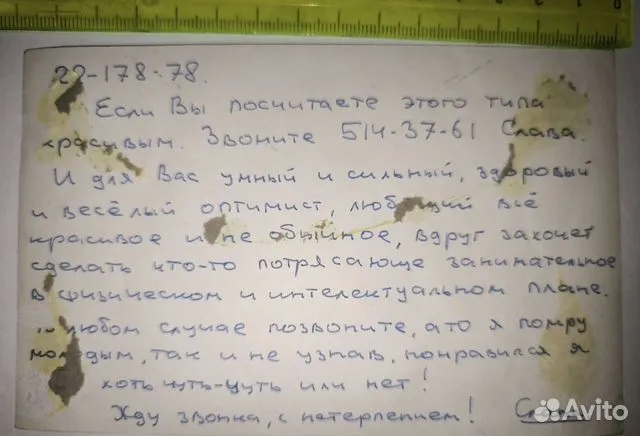 22-178-78.
Если Вы посчитаете этого типа
красивым. Звоните 514-37-61 Слава.
И для Вас умный и сильный, здоровый
и весёлый оптимист, любящий всё
красивое и не обыйное, вдруг захочет
сделать что-то потрясающе занимательное
в физическом и интелектуальном плане.
любом случае позвоните, а то я помру
молодым, так и не узнав, понравился я
хоть чуть-чуть или нет!
Жду звонка, с нетерпением!
Avito